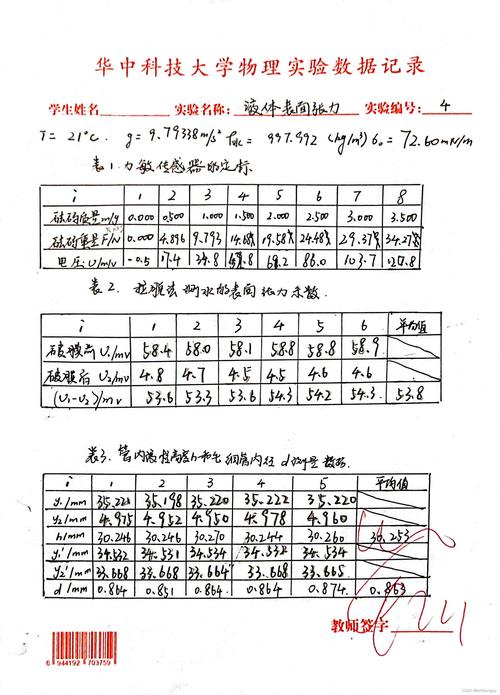 华中科技大学物理实验数据记录
学生姓名 实验名称: 液体表面张力 实验编号: 4
T = 21°C. g = 9.79338 m/s² ρ水 = 997.992 (kg/m³) σ₀ = 72.60 mN/m
表1.力敏传感器的定标
i 1 2 3 4 5 6 7 8
砝码质量m/g 0.000 0.500 1.000 1.500 2.000 2.500 3.000 3.500
砝码重量F/N 0.000 4.896 9.793
电压U/mV -0.5 17.4 34.8 68.2 86.0 103.7 120.8
表2. 拉膜法测水的表面张力系数.
i 1 2 3 4 5 6 平均值
破膜前U₁/mV 58.4 58.0 58.1 58.8 58.8 58.9
破膜后U₂/mV 4.8 4.7 4.5 4.5 4.6 4.6
(U₁-U₂)/mV 53.6 53.3 53.6 54.3 54.2 54.3 53.8
表3. 管内液柱高度h和毛细管内径d测量数据.
i 1 2 3 4 5 平均值
y₁/mm 35.221 35.198 35.220 35.222 35.220
y₂/mm 4.975 4.952 4.950 4.978 4.960
h/mm 30.246 30.246 30.270 30.244 30.260 30.253
y₁'/mm 34.532 34.531 34.534 34.532 34.534
y₂'/mm 33.668 33.668 33.664 33.668 33.665
d/mm 0.864 0.851 0.864 0.864 0.874 0.863
教师签字
6 944192 703759